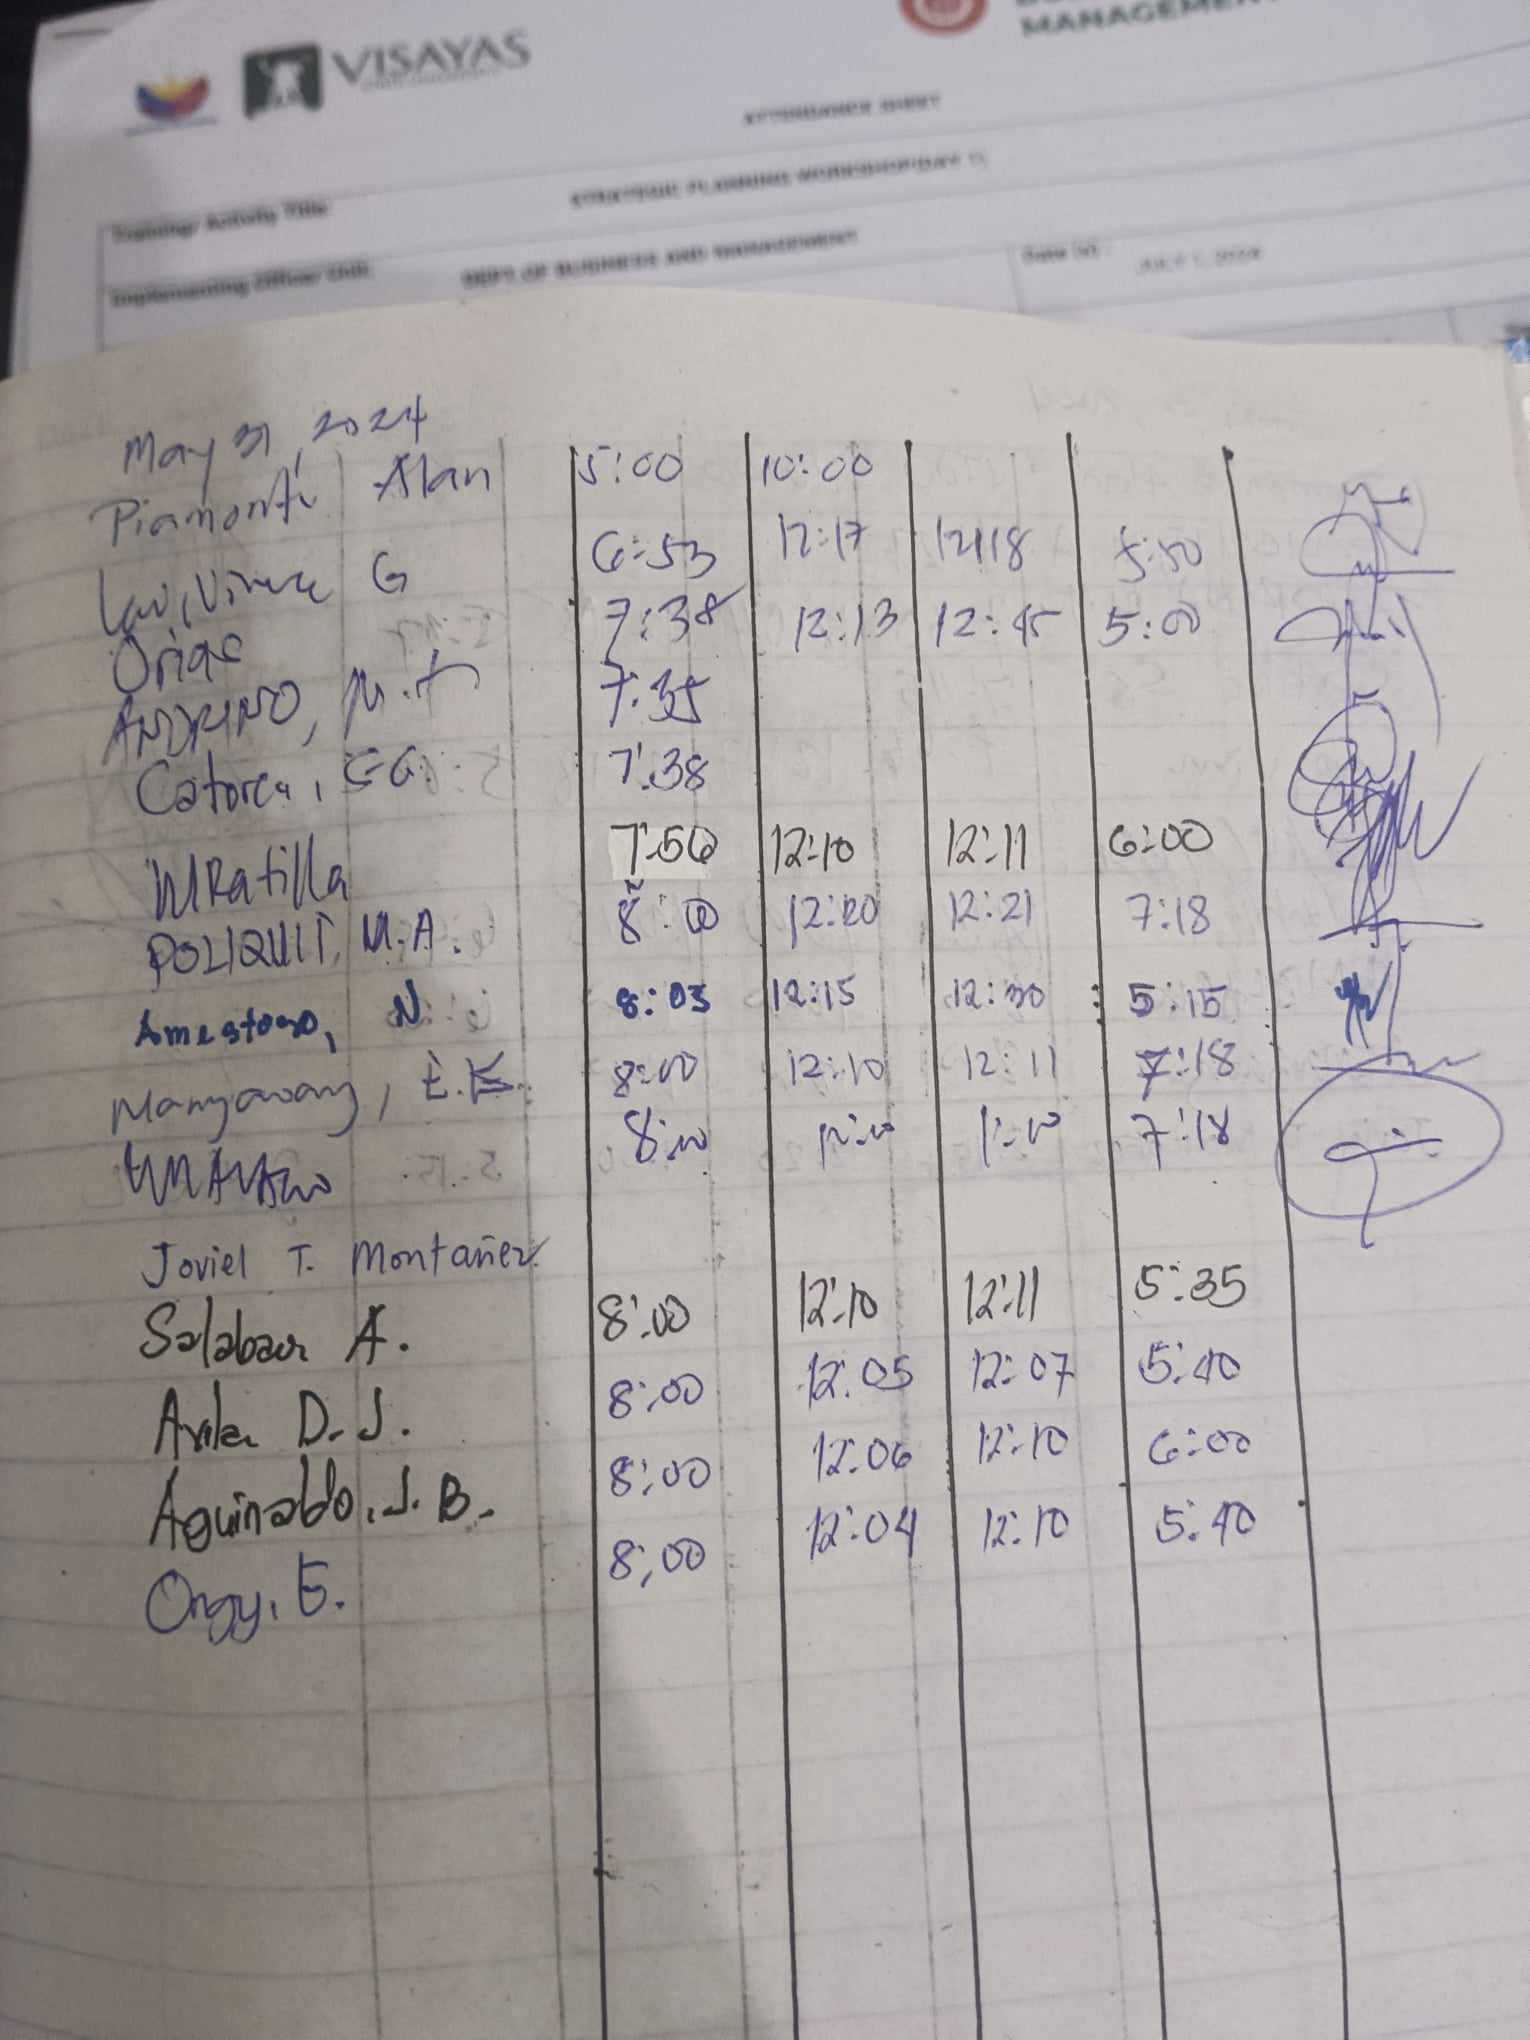 VISAYAS
MANAGEMENT
ATTENDANCE SHEET
Training/ Activity Title STRATEGIC PLANNING WORKSHOP(DAY 1)
Implementing Office/ Unit DEPT. OF BUSINESS AND MANAGEMENT Date (s) : JULY 1, 2024
May 31, 2024
Piamonte Alan 5:00 10:00
G 6:53 12:17 12:18 5:50
Origo 7:38 12:13 12:45 5:00
ANDRINO, M. 7:35
Catorca, 7:38
MRatilla 7:50 12:10 12:11 6:00
POLIQUIT, M.A. 8:00 12:20 12:21 7:18
Amestoso, N. 8:03 12:15 12:30 5:15
Manyawang, E.K. 8:00 12:10 12:11 7:18
8:00 12:00 1:10 7:18
Joviel T. Montañez
Salabao A. 8:00 12:10 12:11 5:35
Avila D.J. 8:00 12:05 12:07 5:40
Aguinaldo, J.B. 8:00 12:06 12:10 6:00
Ongy, E. 8:00 12:04 12:10 5:40